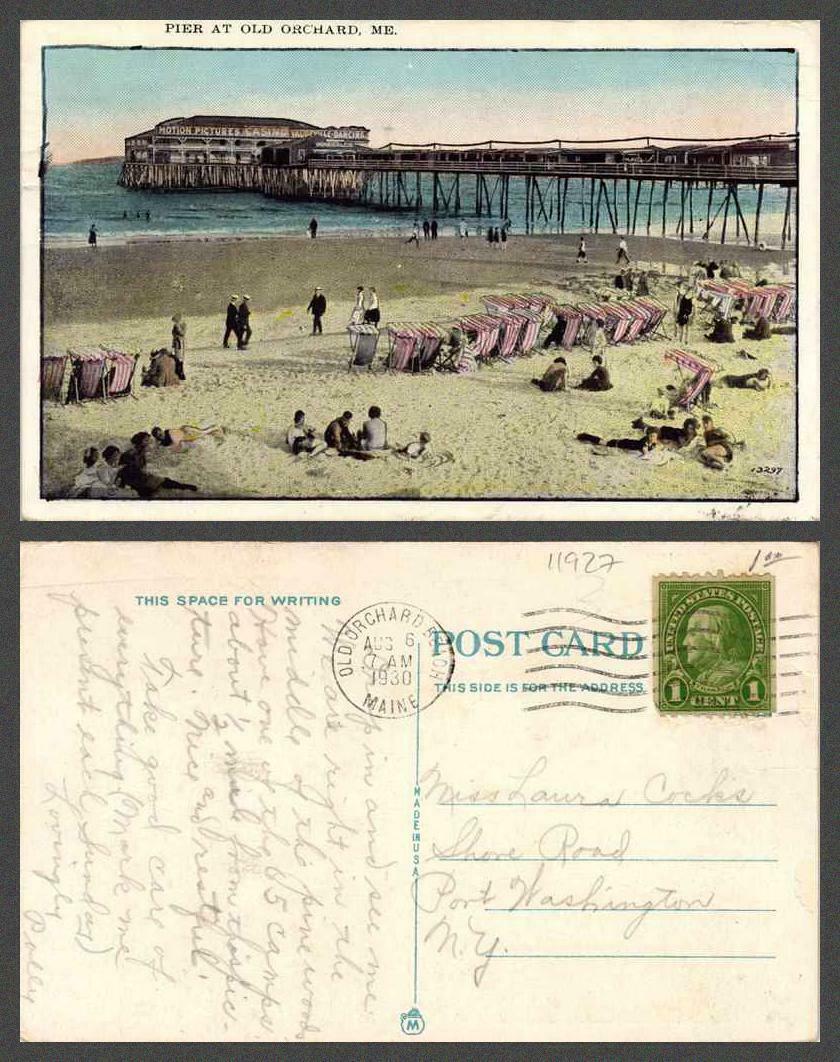 PIER AT OLD ORCHARD, ME.
MOTION PICTURES CASINO VAUDEVILLE-DANCING
13297
11927
1.00
THIS SPACE FOR WRITING
OLD ORCHARD BEACH
AUG 6
7 AM
1930
MAINE
POST CARD
THIS SIDE IS FOR THE ADDRESS
UNITED STATES POSTAGE
1 CENT 1
MADE IN USA
Miss Laura Cocks
Shore Road
Port Washington
N.Y.
in and see me.
We are right in the
middle of the pine woods.
Have one of the 65 camps
about ½ mile from this pic-
ture. Nice and restful.
Take good care of
everything. (Mark me
present each Sunday)
Lovingly
Polly
M